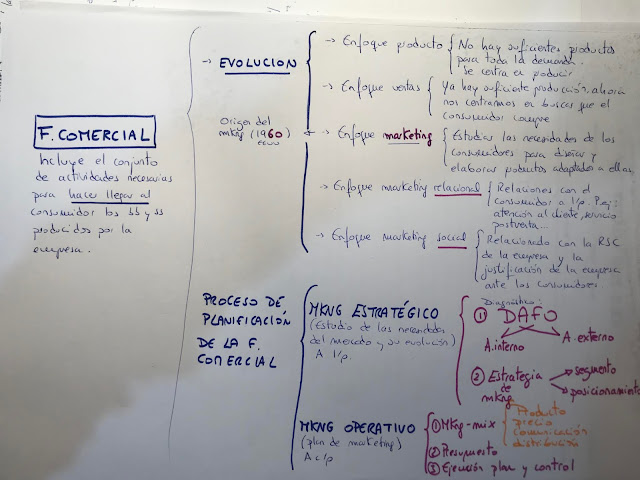 F. COMERCIAL
Incluye el conjunto
de actividades necesarias
para hacer llegar al
consumidor los bs y ss
producidos por la
empresa.
→ EVOLUCION
Origen del
mkng (1960)
→ Enfoque producto
No hay suficientes productos
para toda la demanda.
Se centra en producir
→ Enfoque ventas
Ya hay suficiente producción, ahora
nos centramos en buscar que el
consumidor compre
→ Enfoque marketing
Estudiar las necesidades de los
consumidores para diseñar y
elaborar productos adaptados a ellas.
→ Enfoque marketing relacional
Relaciones con el
consumidor a l/p. P.ej:
atención al cliente, servicio
postventa...
→ Enfoque marketing social
Relacionado con la RSC
de la empresa y la
justificación de la empresa
ante los consumidores.
PROCESO DE
PLANIFICACIÓN
DE LA F.
COMERCIAL
MKNG ESTRATÉGICO
(Estudio de las necesidades
del mercado y su evolución)
A l/p
Diagnóstico:
① DAFO
A. interno
A. externo
② Estrategia
de
mkng
segmento
posicionamiento
MKNG OPERATIVO
(plan de marketing)
A c/p
① Mkng-mix
Producto
precio
comunicación
distribución
② Presupuesto
③ Ejecución plan y control